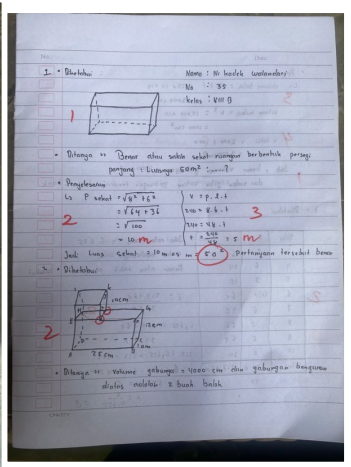 No. Date
1. • Diketahui Nama : Ni kadek wulandari
No : 35
kelas : VIII B
1
• Ditanya => Benar atau salah sekat ruangan berbentuk persegi
panjang : Luasnya 50m² ........?
• Penyelesaian
↳ P sekat = √8² + 6² V = p . l . t
= √64 + 36 240 = 8 . 6 . t
2 = √100 240 = 48 . t 3
= 10 m t = 240/48 = 5 m
Jadi Luas sekat = 10 m × 5 m = 50² Pertanyaan tersebut benar
2. • Diketahui
10cm
12cm
2
10m
25cm
A B
• Ditanya => Volume gabungan = 4000 cm dan gabungan bangunan
diatas adalah 2 buah balok